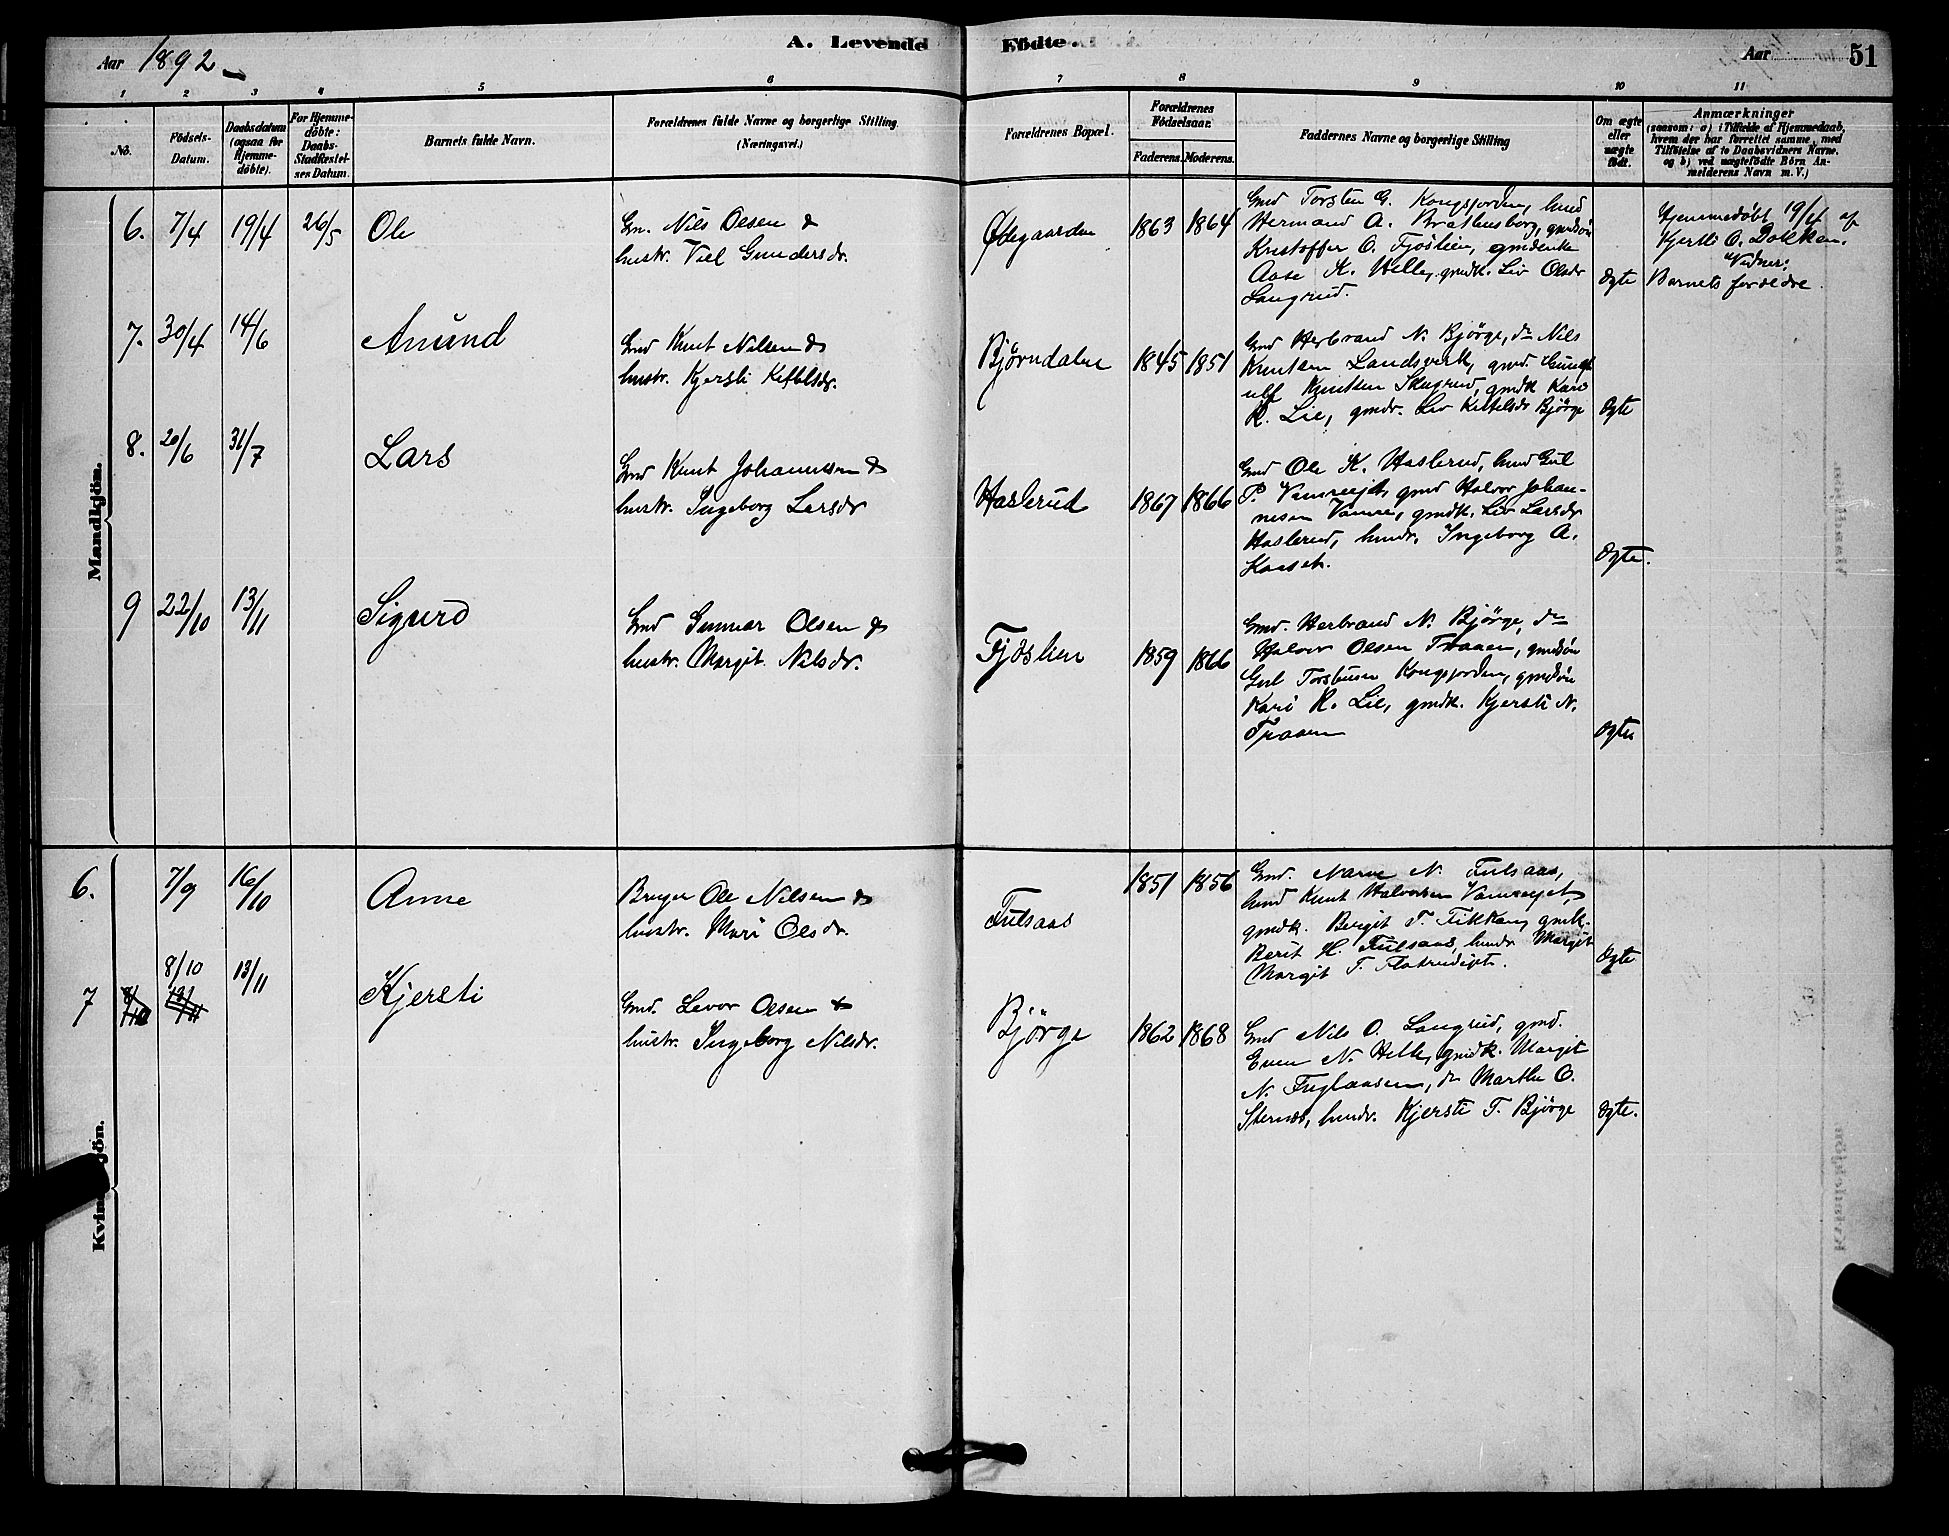 Aar 1892
A. Levende Födte.
Aar
51
1 2 3 4 5 6 7 8 9 10 11
No.
Födsels-Datum.
Daabsdatum (ogsaa for Hjemme-döbte).
For Hjemme-döbte: Daabs-Stadfæstel-ses Datum.
Barnets fulde Navn.
Forældrenes fulde Navne og borgerlige Stilling.
(Næringsvei.)
Forældrenes Bopæl.
Forældrenes Födselsaar.
Faderens. Moderens.
Faddernes Navne og borgerlige Stilling
Om ægte eller uægte födt.
Anmærkninger
(saasom: a) i Tilfælde af Hjemmedaab,
hvem der har forrettet samme, med
Tilföielse af to Daabsvidners Navne.
og b) ved uægtefödte Börn An-
melderens Navn m. V.)
Mandkjön.
6. 7/4 19/4 26/5 Ole
Gm. Nils Olsen &
hustr. Viel Gundersdr.
Ødegaarden 1863 1864
Gmd Torsten G. Kongsjorden, hmd
Hermand A. Brathensborg, gmdsön
Kristoffer O. Fjøslien, gmdenke
Aase K. Helle, gmdk. Liv Olsdr
Langrud.
Ægte
Hjemmedøbt 19/4 af
Kjersti O. Dokken.
Vidner:
Barnets forældre.
7. 30/4 14/6 Amund
Gmd Knut Nilsen &
hustr. Kjersti Kittilsdr.
Bjørndalen 1845 1851
Gmd Herbrand N. Bjørge, do Nils
Knutsen Landsverk, gmd.
Knutsen Skagrud, gmdk Kari
R. Lie, gmdr. Liv Kittelsdr Bjørge
Ægte
8. 20/6 31/7 Lars
Gmd Knut Johannessen &
hustr. Ingeborg Larsdr
Haslerud 1867 1866
Gmd Ole K. Haslerud, hmd Gul
P. Vamreejet, gmd Halvor Johan-
nesen Vamre, gmdk. Liv Larsdr
Haslerud, hmdr. Ingeborg A.
Kaaset.
Ægte.
9 22/10 13/11 Sigurd
Gmd Gunnar Olsen &
hustr. Margit Nilsdr.
Fjøslien 1859 1866
Gmd. Herbrand N. Bjørge, do
Halvor Olsen Traaen, gmdsön
Gul Torstensen Kongsjorden, gmdsön
Kari R. Lie, gmdk. Kjersti N.
Traaen
Ægte
Kvin jön.
6. 7/9 16/10 Anne
Bruger Ole Nilsen &
hustr. Mari Olsdr.
Tulsaas 1851 1856
Gmd. Narve N. Tulsaas,
hmd Knut Halvorsen Vamreejet,
gmdk. Bergit T. Fikkan, gmdk.
Berit H. Tulsaas, hmdr Margit
Margit T. Flatrudejet.
Ægte
7 8/10 13/11 Kjersti
Gmd. Levor Olsen &
hustr. Ingeborg Nilsdr.
Bjørge 1862 1868
Gmd Nils O. Langrud, gmd.
Even N. Helle, gmdk. Margit
N. Fuglaasen, do Marthe O.
Sternæs, hmdr. Kjersti T. Bjørge
Ægte.